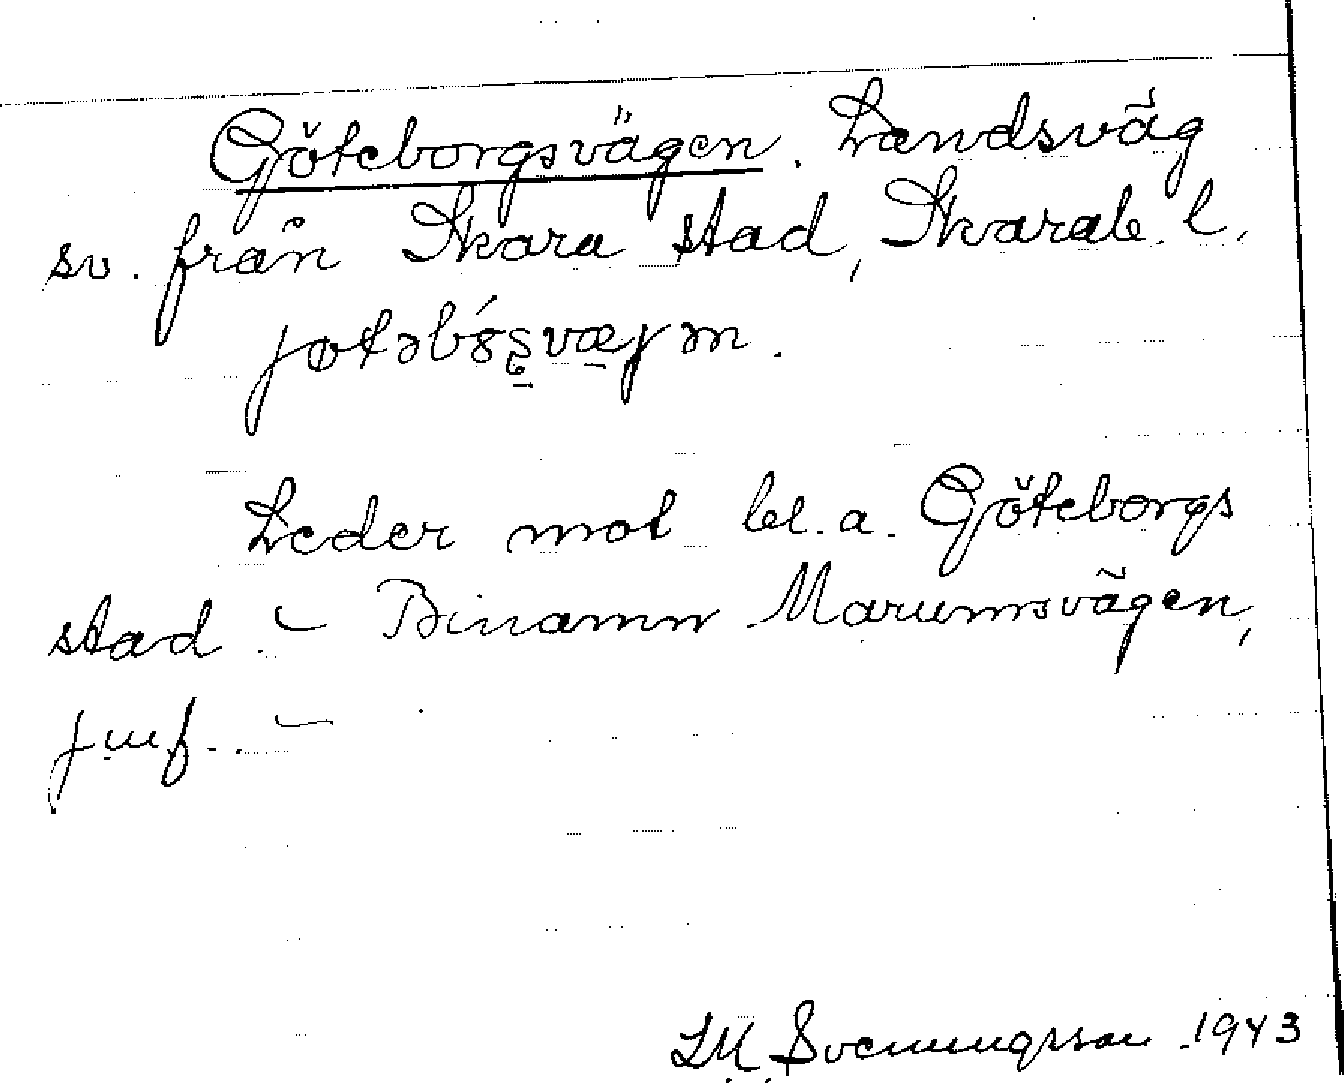 Göteborgsvägen. Landsväg
sv. från Skara stad, Skarab. l.
Leder mot bl. a. Göteborgs
stad. – Binamn Marumsvägen,
jmf. –
Svenungsson 1943